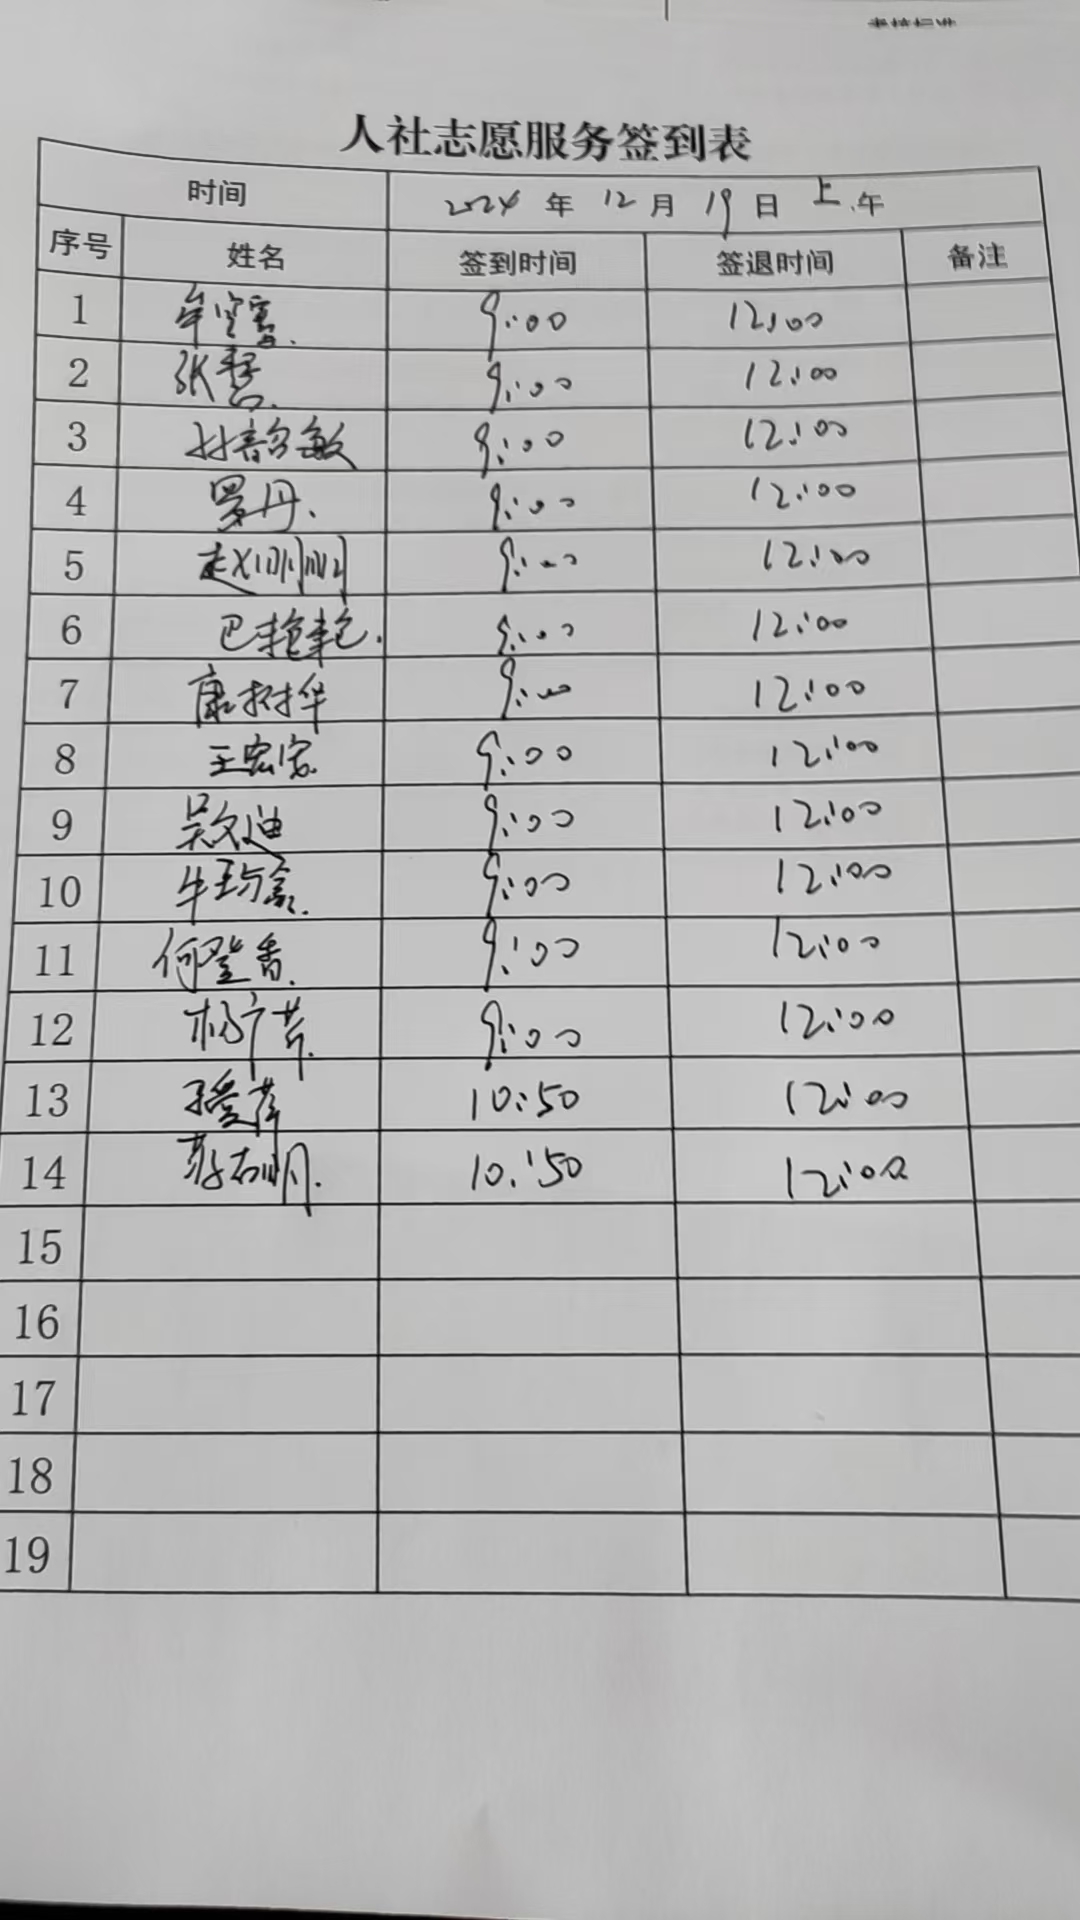 人社志愿服务签到表
时间 2024 年 12 月 19 日 上午
序号 姓名 签到时间 签退时间 备注
1 9:00 12:00
2 张 9:00 12:00
3 敏 9:00 12:00
4 罗丹. 9:00 12:00
5 赵明明 9:00 12:00
6 巴艳艳. 9:00 12:00
7 康树华 9:00 12:00
8 王宏宏 9:00 12:00
9 吴文迪 9:00 12:00
10 牛 9:00 12:00
11 何登香. 9:00 12:00
12 杨广芹. 9:00 12:00
13 10:50 12:00
14 10:50 12:00
15
16
17
18
19